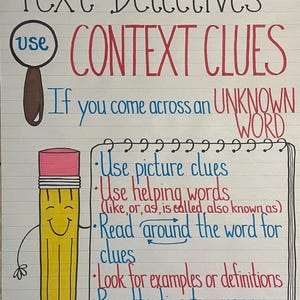 Text Detectives
use
CONTEXT CLUES
If you come across an UNKNOWN
WORD
• Use picture clues
• Use helping words
(like, or, as, is called, also known as)
• Read around the word for
clues
• Look for examples or definitions